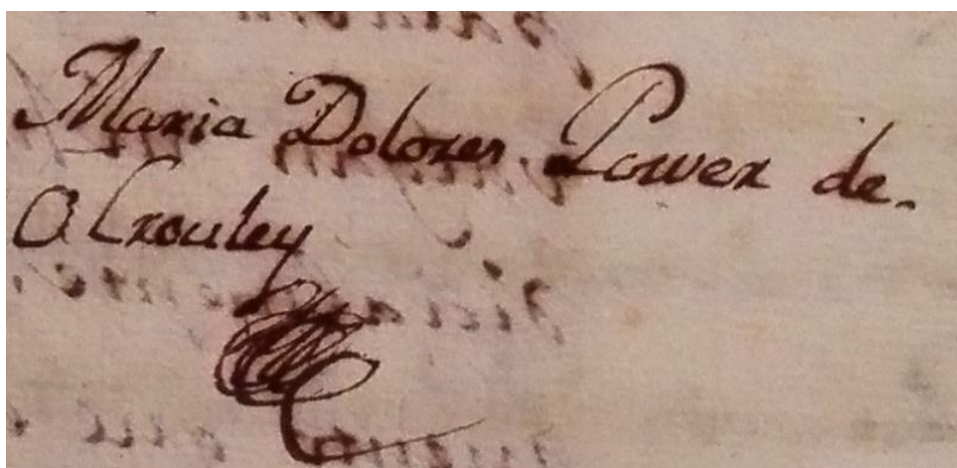 Maria Dolores Power de.
O Crouley